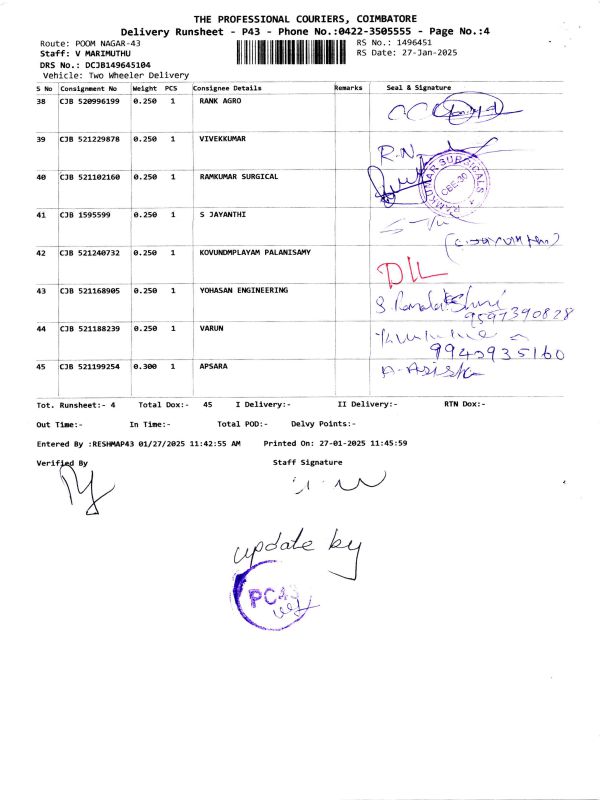 THE PROFESSIONAL COURIERS, COIMBATORE
Delivery Runsheet - P43 - Phone No.:0422-3505555 - Page No.:4
Route: POOM NAGAR-43 RS No.: 1496451
Staff: V MARIMUTHU RS Date: 27-Jan-2025
DRS No.: DCJB149645104
Vehicle: Two Wheeler Delivery
S No Consignment No Weight PCS Consignee Details Remarks Seal & Signature
38 CJB 520996199 0.250 1 RANK AGRO
39 CJB 521229878 0.250 1 VIVEKKUMAR R.N.
40 CJB 521102160 0.250 1 RAMKUMAR SURGICAL RAMKUMAR SURGICALS CBE-30
41 CJB 1595599 0.250 1 S JAYANTHI
42 CJB 521240732 0.250 1 KOVUNDMPLAYAM PALANISAMY DIL
43 CJB 521168905 0.250 1 YOHASAN ENGINEERING
9597390828
44 CJB 521188239 0.250 1 VARUN
9942935160
45 CJB 521199254 0.300 1 APSARA
Tot. Runsheet:- 4 Total Dox:- 45 I Delivery:- II Delivery:- RTN Dox:-
Out Time:- In Time:- Total POD:- Delvy Points:-
Entered By :RESHMAP43 01/27/2025 11:42:55 AM Printed On: 27-01-2025 11:45:59
Verified By Staff Signature
update by
PC43